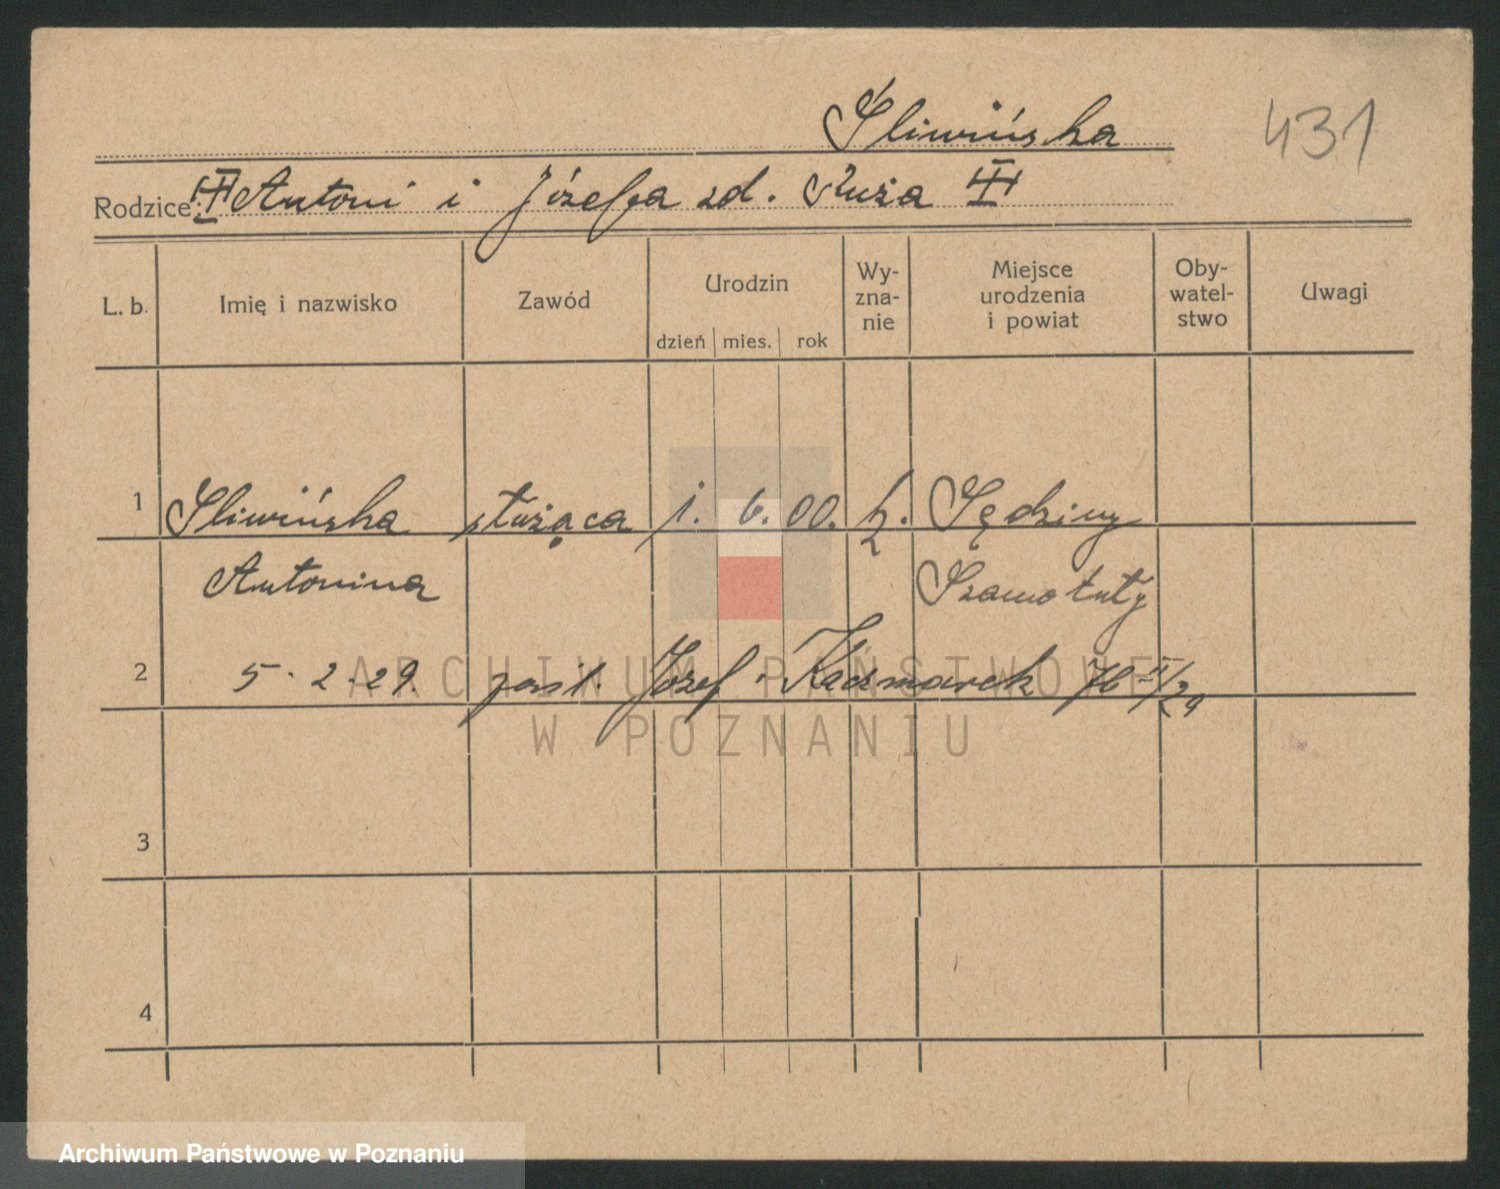 Śliwińska 431
Rodzice: Antoni i Józefa zd. Ruża
L. b. Imię i nazwisko Zawód Urodzin dzień mies. rok Wyznanie Miejsce urodzenia i powiat Obywatelstwo Uwagi
1 Śliwińska służąca 1. 6. 00. k. Sędziny
Antonina Szamotuły
2 5. 2. 29. zaśl. Józef Kaczmarek
ARCHIWUM PAŃSTWOWE
W POZNANIU
3
4
Archiwum Państwowe w Poznaniu